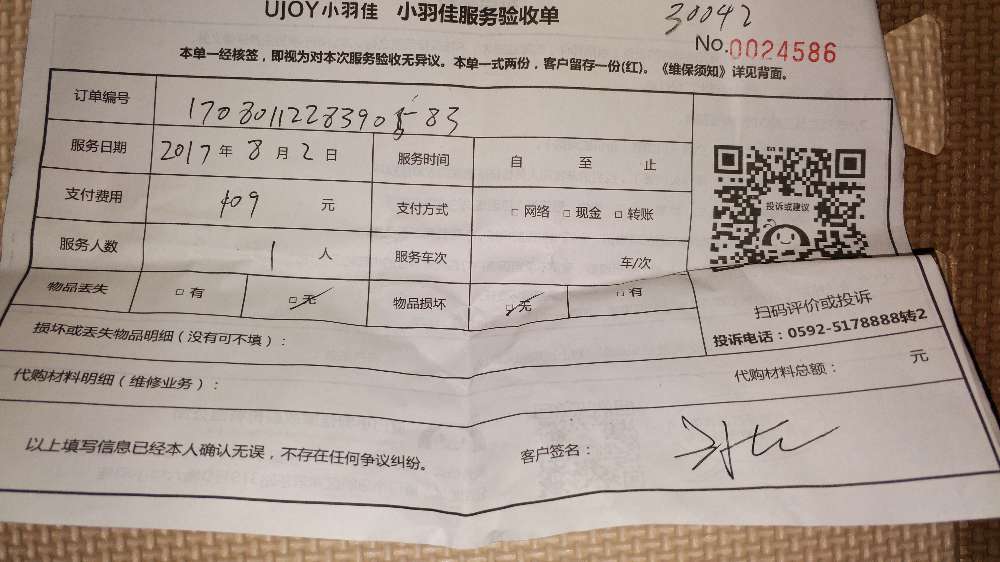 UJOY小羽佳 小羽佳服务验收单
30042
No.0024586
本单一经核签，即视为对本次服务验收无异议。本单一式两份，客户留存一份(红)。《维保须知》详见背面。
订单编号
服务日期 2017年8月2日 服务时间 自 至 止
支付费用 109 元 支付方式 □网络 □现金 □转账
投诉或建议
服务人数 1 人 服务车次 车/次
物品丢失 □有 □无 物品损坏 □无 □有
扫码评价或投诉
投诉电话：0592-5178888转2
损坏或丢失物品明细(没有可不填)：
代购材料明细(维修业务)： 代购材料总额： 元
以上填写信息已经本人确认无误，不存在任何争议纠纷。 客户签名：